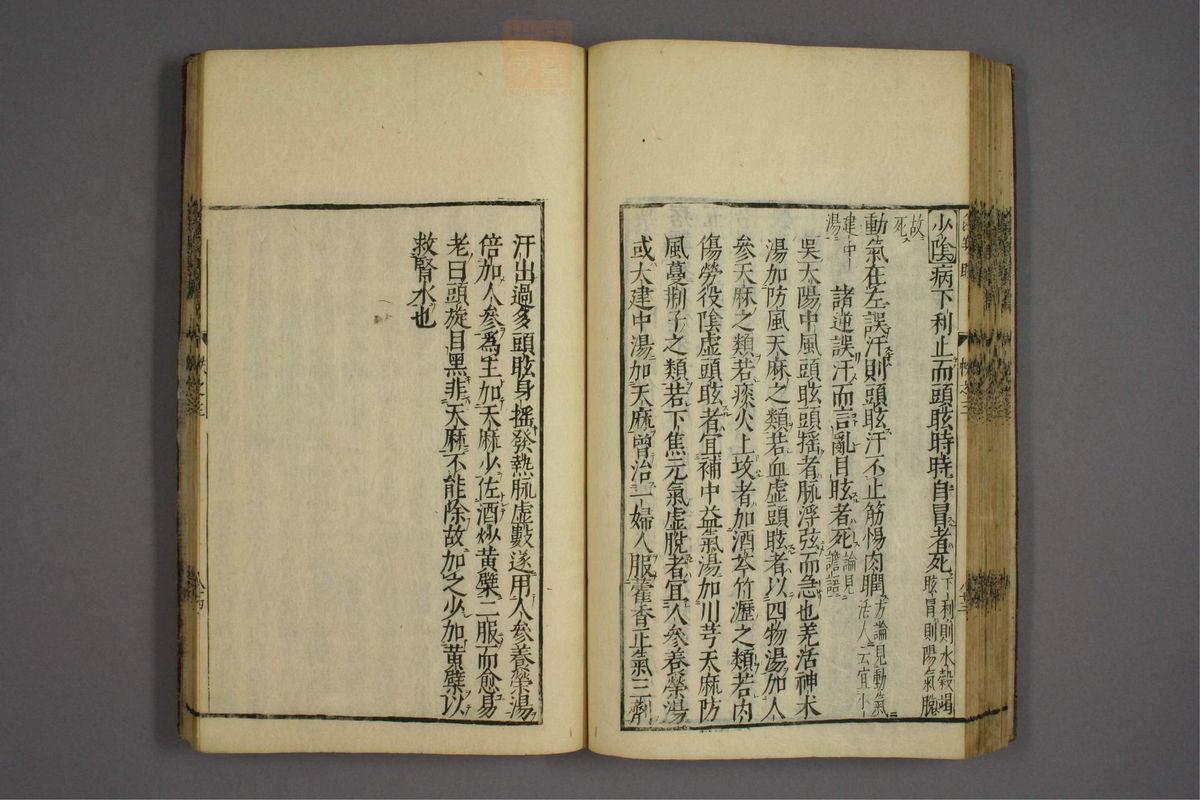 少陰病下利止而頭眩時時自冒者死下利則水穀竭眩冒則陽氣脫
故死
動氣在左誤汗則頭眩汗不止筋惕肉瞤方論見動氣活人云宜小
建中湯
諸逆誤汗而言亂目眩者死論見譫語
吳太陽中風頭眩頭搖者脉浮弦而急也羌活神术
湯加防風天麻之類若血虛頭眩者以四物湯加人
參天麻之類若痰火上攻者加酒芩竹瀝之類若內
傷勞役陰虛頭眩者宜補中益氣湯加川芎天麻防
風蔓荊子之類若下焦元氣虛脫者宜人參養榮湯
或大建中湯加天麻曾治一婦人服藿香正氣三劑
汗出過多頭眩身搖發熱脉虛數遂用人參養榮湯
倍加人參爲主加天麻少佐酒炒黃蘗二服而愈易
老曰頭旋目黑非天麻不能除故加之少加黃蘗以
救腎水也